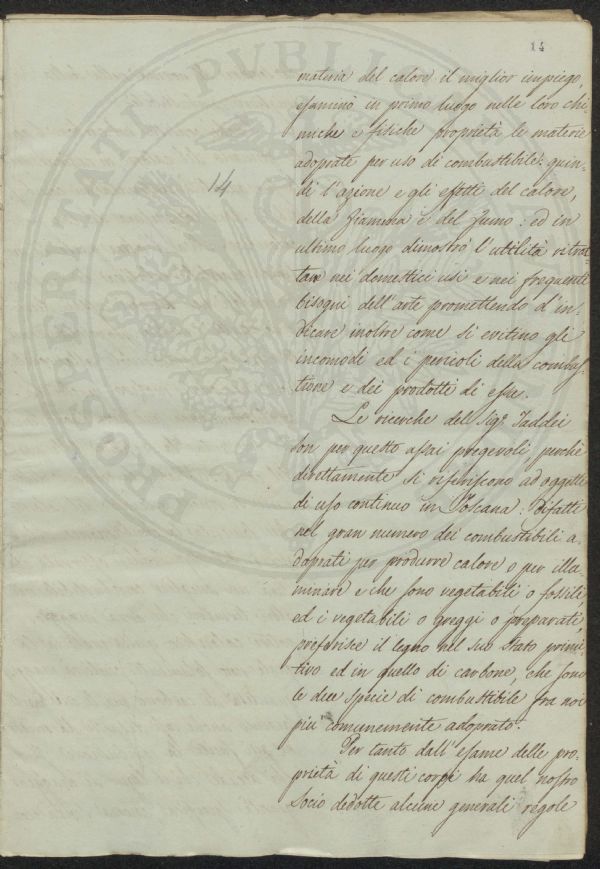 14
14
PROSPERITATI PVBLICAE
materia del calore il miglior impiego,
esaminò in primo luogo nelle loro chi-
miche e fisiche proprietà le materie
adoprate per uso di combustibile: quin-
di l'azione e gli effetti del calore,
della fiamma e del fumo: ed in
ultimo luogo dimostrò l'utilità ritrat-
tare nei domestici usi e nei frequenti
bisogni dell'arte promettendo d'in-
dicare inoltre come si evitino gli
incomodi ed i pericoli della combus-
tione e dei prodotti di essa.
Le ricerche del Sigr. Taddei
son per questo assai pregevoli, perchè
direttamente si riferiscono ad oggetti
di uso continuo in Toscana: Difatte
nel gran numero dei combustibili a-
doprati per produrre calore o per illu-
minare e che sono vegetabili o fossili,
ed i vegetabili o greggi o preparati,
preferisce il legno nel suo stato primi-
tivo ed in quello di carbone, che sono
le due specie di combustibile fra noi
più comunemente adoprato.
Per tanto dall'esame delle pro-
prietà di questi corpi ha quel nostro
Socio dedotte alcune generali regole